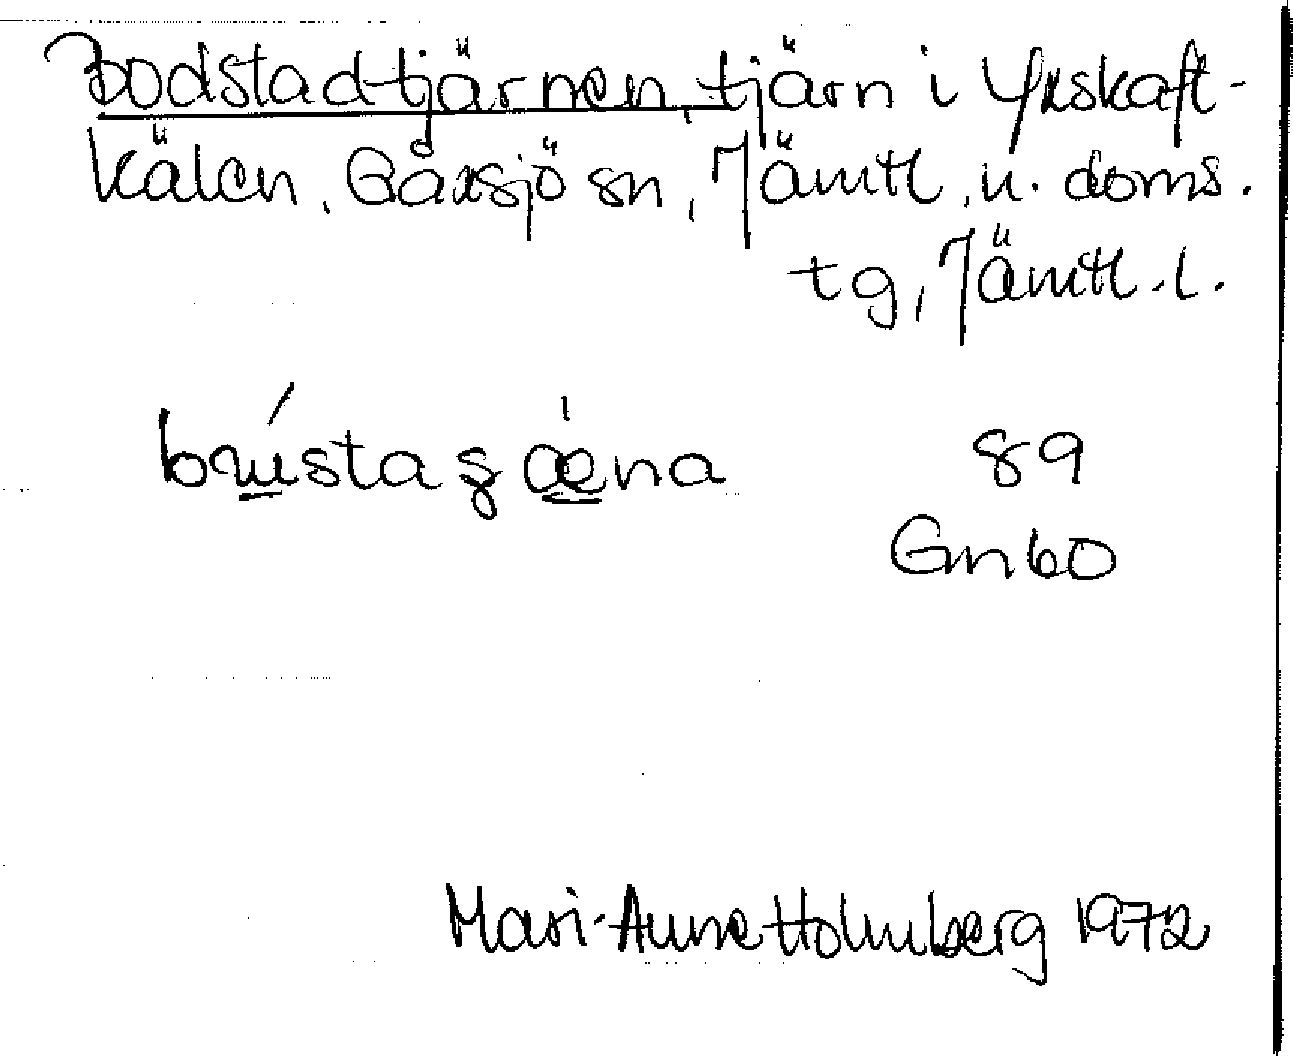 Bodstadtjärnen, tjärn i Yxskaft-
kälen, Gåxsjö sn, Jämtl. n. doms.
tg, Jämtl. l.
89
Gn 60
Mari-Anne Holmberg 1972